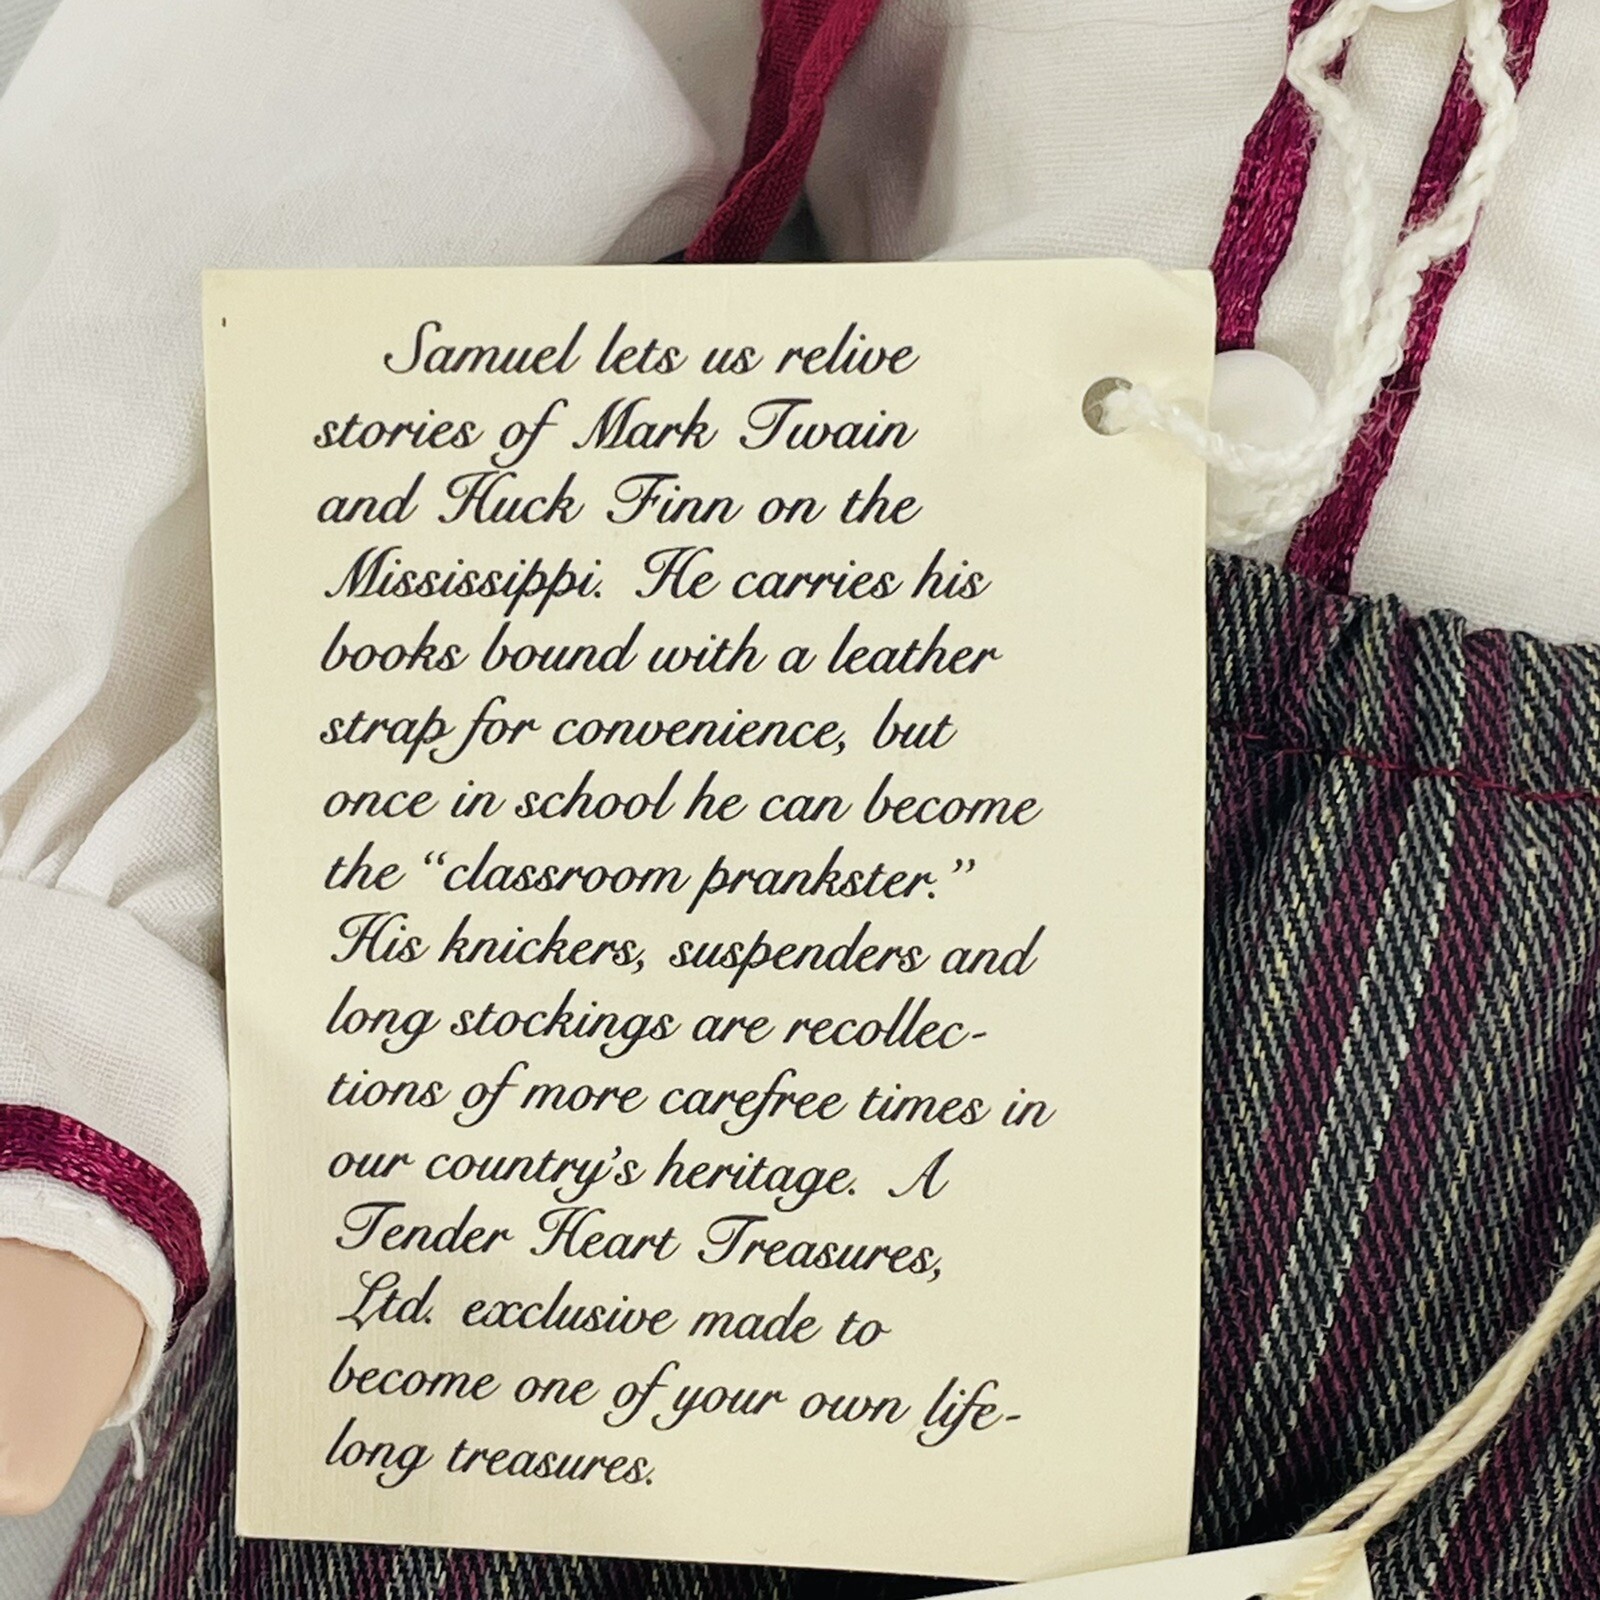 Samuel lets us relive
stories of Mark Twain
and Huck Finn on the
Mississippi. He carries his
books bound with a leather
strap for convenience, but
once in school he can become
the “classroom prankster.”
His knickers, suspenders and
long stockings are recollec-
tions of more carefree times in
our country’s heritage. A
Tender Heart Treasures,
Ltd. exclusive made to
become one of your own life-
long treasures.